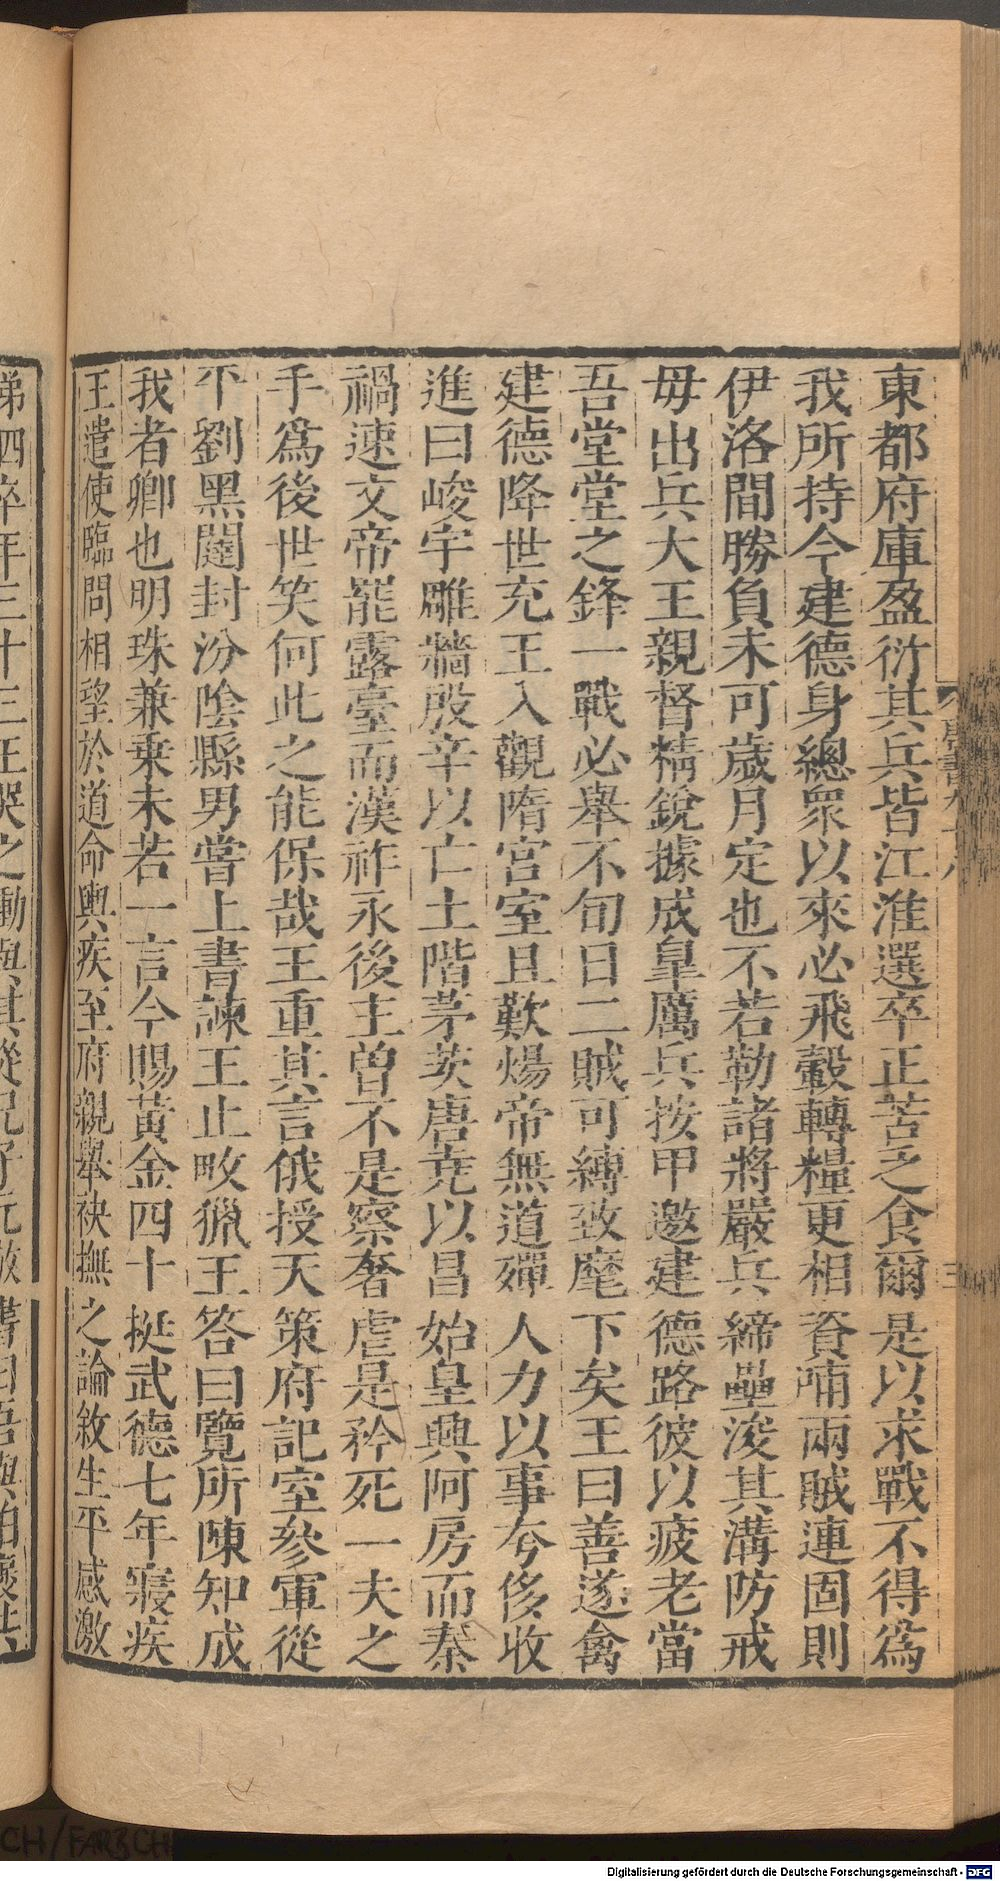 東都府庫盈衍其兵皆江淮選卒正苦乏食爾是以求戰不得爲
我所持今建德身總衆以來必飛轂轉糧更相資哺兩賊連固則
伊洛間勝負未可歲月定也不若勒諸將嚴兵締壘浚其溝防戒
毋出兵大王親督精銳據成皐厲兵按甲邀建德路彼以疲老當
吾堂堂之鋒一戰必舉不旬日二賊可縛致麾下矣王曰善遂禽
建德降世充王入觀隋宮室且歎煬帝無道殫人力以事夸侈收
進曰峻宇雕牆殷辛以亡土階茅茨唐堯以昌始皇興阿房而秦
禍速文帝罷露臺而漢祚永後主曾不是察奢虐是矜死一夫之
手爲後世笑何此之能保哉王重其言俄授天策府記室參軍從
平劉黑闥封汾陰縣男嘗上書諫王止畋獵王答曰覽所陳知成
我者卿也明珠兼乗未若一言今賜黃金四十挺武德七年寢疾
王遣使臨問相望於道命輿疾至府親舉袂撫之論敘生平感激
涕四卒年三十三王哭之慟與其從兄子元敬書曰吾與伯褒共
唐書九十八
三
Digitalisierung gefördert durch die Deutsche Forschungsgemeinschaft - DFG